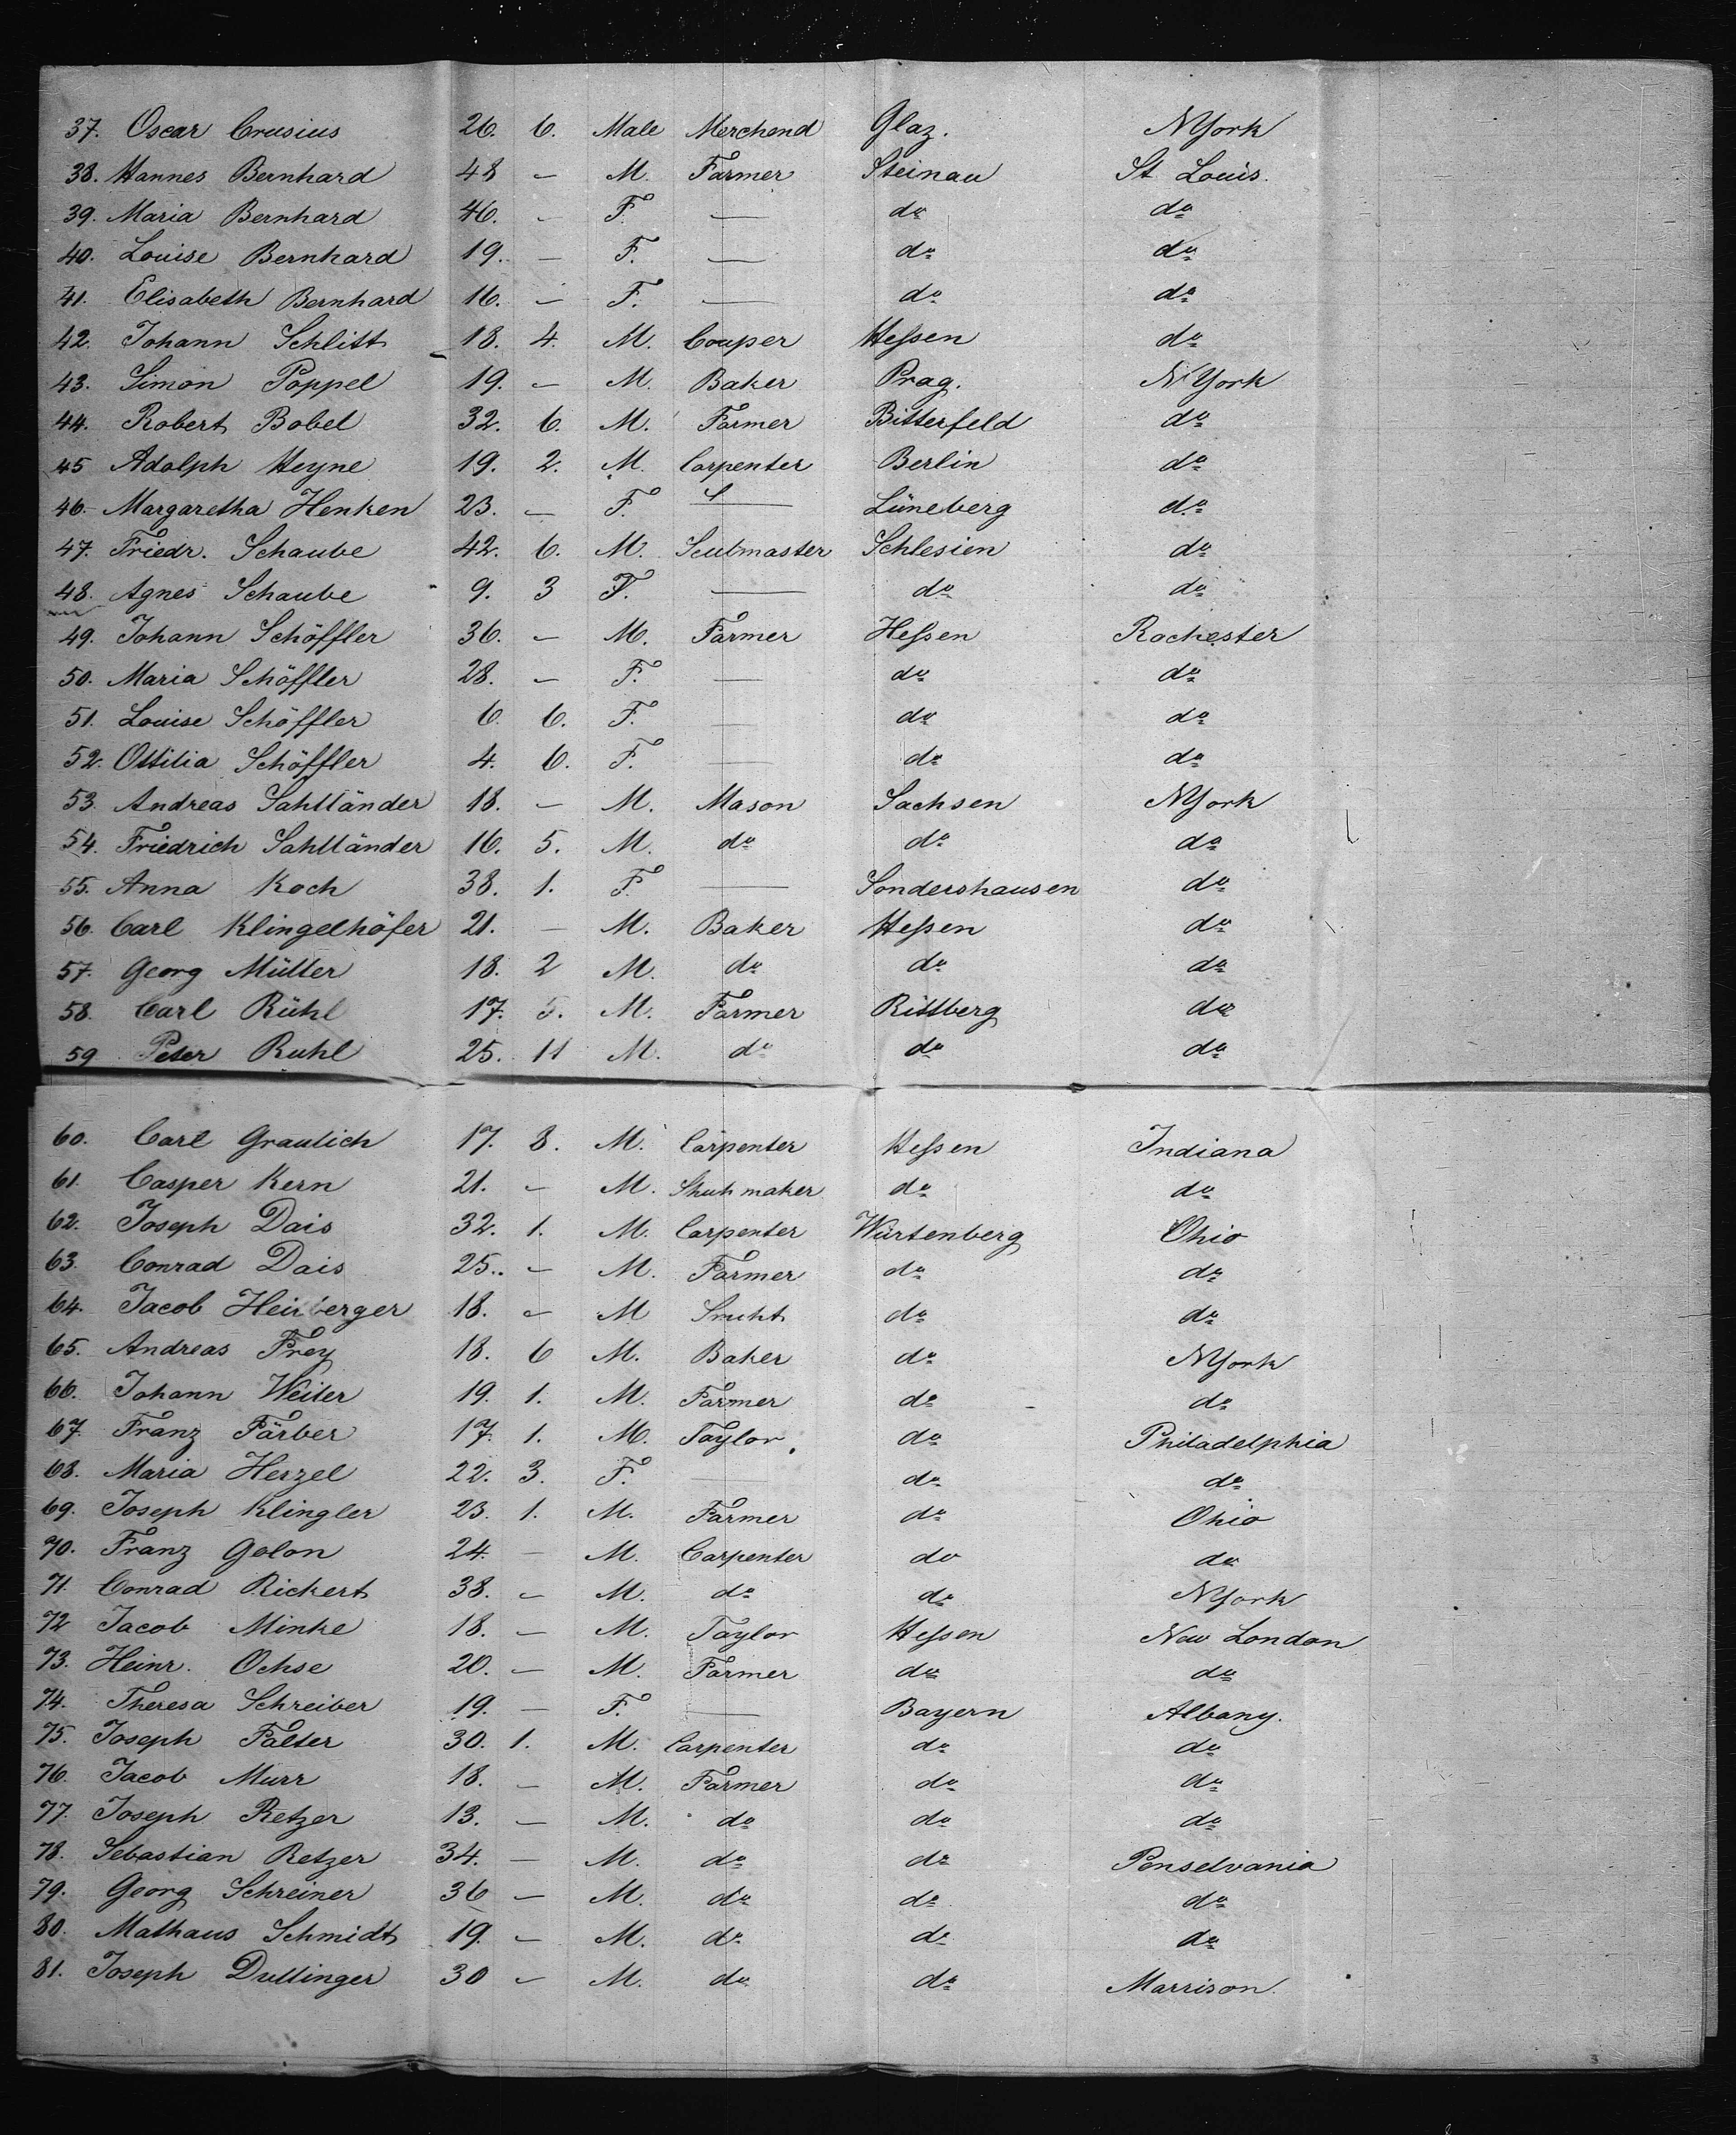 37. Oscar Crusius 26. 6. Male Merchend Glaz. NYork
38. Hannes Bernhard 48 — M. Farmer Steinau St. Louis.
39. Maria Bernhard 46. — F. — do do
40. Louise Bernhard 19. — F. — do do
41. Elisabeth Bernhard 16. — F. — do do
42. Johann Schlitt 18. 4. M. Couper Hessen do
43. Simon Poppel 19. — M. Baker Prag. NYork
44. Robert Bobel 32. 6. M. Farmer Bitterfeld do
45 Adolph Heyne 19. 2. M. Carpenter Berlin do
46. Margaretha Henken 23. — F. — Lüneberg do
47. Friedr. Schaube 42. 6. M. Sculmaster Schlesien do
48. Agnes Schaube 9. 3 F. — do do
49. Johann Schöffler 36. — M. Farmer Hessen Rochester
50. Maria Schöffler 28. — F. — do do
51. Louise Schöffler 6 6. F. — do do
52. Ottilia Schöffler 4. 6. F. — do do
53. Andreas Sahlländer 18. — M. Mason Sachsen NYork
54. Friedrich Sahlländer 16. 5. M. do do do
55. Anna Koch 38. 1. F. — Sondershausen do
56. Carl Klingelhöfer 21. — M. Baker Hessen do
57. Georg Müller 18. 2 M. do do do
58. Carl Rühl 17. 5. M. Farmer Rittberg do
59 Peter Ruhl 25. 11 M. do do do
60. Carl Graulich 17. 8. M. Carpenter Hessen Indiana
61. Casper Kern 21. — M. Shuhmaker do do
62. Joseph Dais 32. 1. M. Carpenter Würtenberg Ohio
63. Conrad Dais 25. — M. Farmer do do
64. Jacob 18. — M do do
65. Andreas Frey 18. 6 M. Baker do NYork
66. Johann Weiler 19. 1. M. Farmer do do
67. Franz Färber 17. 1. M. Taylor do Philadelphia
68. Maria Herzel 22. 3. F. — do do
69. Joseph Klingler 23. 1. M. Farmer do Ohio
70. Franz Golon 24. — M. Carpenter do do
71. Conrad Rickert 38. — M. do do NYork
72 Jacob Minke 18. — M. Taylor Hessen New London
73. Heinr. Ochse 20. — M. Farmer do do
74. Theresa Schreiber 19. — F. — Bayern Albany.
75. Joseph Falter 30. 1. M. Carpenter do do
76. Jacob Murr 18. — M. Farmer do do
77. Joseph Retzer 13. — M. do do do
78. Sebastian Retzer 34. — M. do do Penselvania
79. Georg Schreiner 36 — M. do do do
80. Mathaus Schmidt 19. — M. do do do
81. Joseph Dullinger 30 — M. do do Marrison.